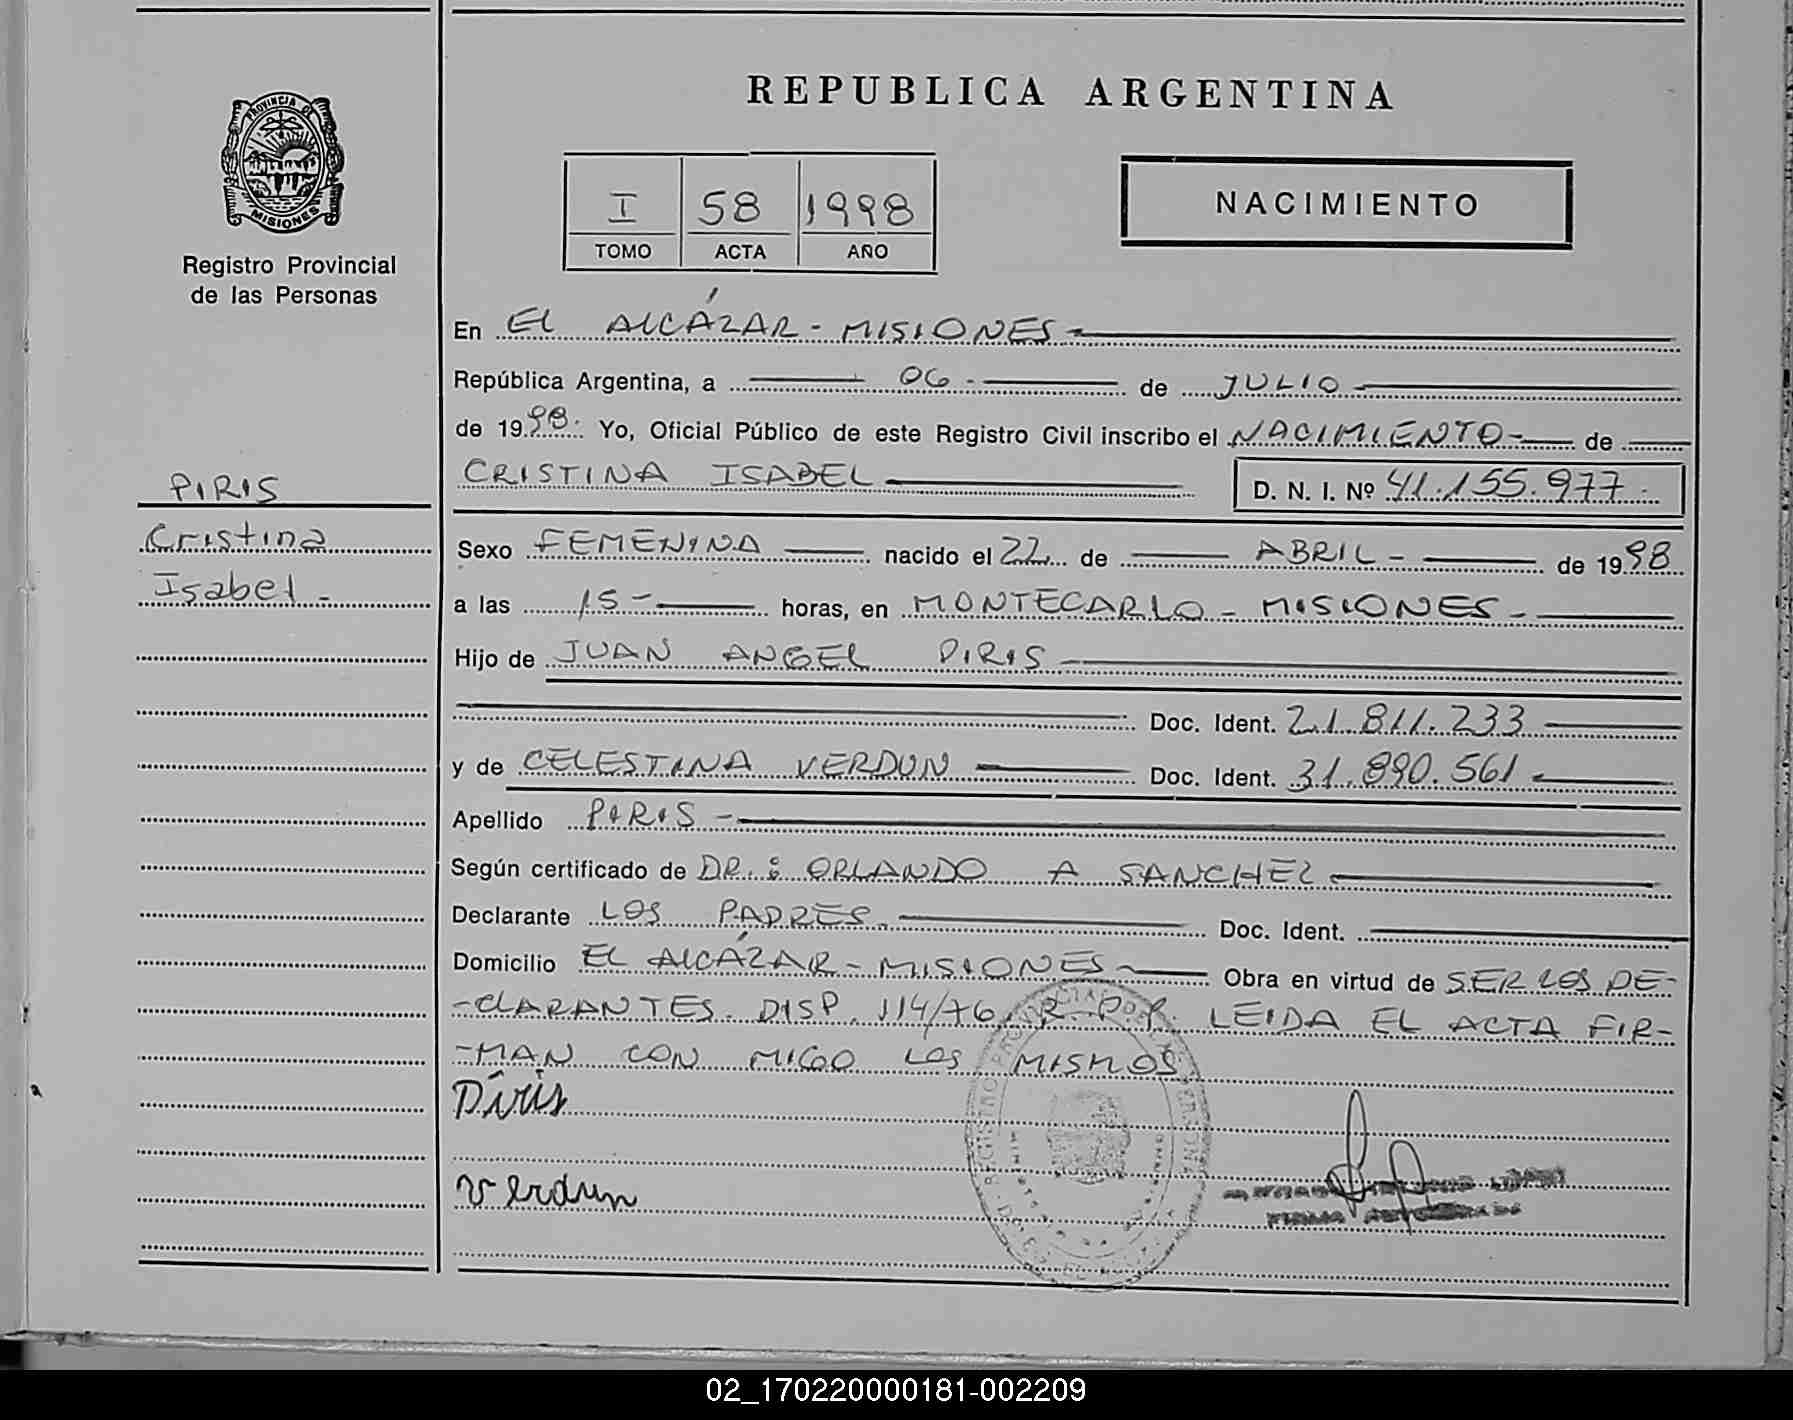 REPUBLICA ARGENTINA
PROVINCIA DE
MISIONES
Registro Provincial
de las Personas
I 58 1998
TOMO ACTA AÑO
NACIMIENTO
En EL ALCÁZAR - MISIONES
República Argentina, a 06 - de JULIO
de 1998. Yo, Oficial Público de este Registro Civil inscribo el NACIMIENTO - de
CRISTINA ISABEL D. N. I. Nº 41.155.977.
PIRIS
Cristina
Isabel -
Sexo FEMENINA nacido el 22 de ABRIL - de 1998
a las 15 - horas, en MONTECARLO - MISIONES -
Hijo de JUAN ANGEL PIRIS
Doc. Ident. 21.811.233
y de CELESTINA VERDUN Doc. Ident. 31.890.561
Apellido PIRIS -
Según certificado de DR.: ORLANDO A SANCHEZ
Declarante LOS PADRES. Doc. Ident.
Domicilio EL ALCÁZAR - MISIONES - Obra en virtud de SER LOS DE-
-CLARANTES. DISP. 114/76. R. P. P. LEIDA EL ACTA FIR-
-MAN CON MIGO LOS MISMOS
Piris
Verdun
FIRMA AUTORIZADA
02_170220000181-002209